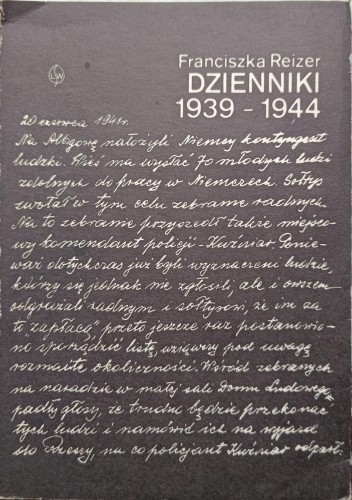 LSW
Franciszka Reizer
DZIENNIKI
1939 - 1944
20 czerwca 1941 r.
Na Albigowę nałożyli Niemcy kontyngent
ludzki. Wieś ma wysłać 70 młodych ludzi
zdolnych do pracy w Niemczech. Sołtys
zwołał w tym celu zebranie radnych.
Na to zebranie przyszedł także miejsco-
wy komendant policji - Kuźniar. Ponie-
waż dotychczas już byli wyznaczeni ludzie,
którzy się jednak nie zgłosili, ale i owszem
odgrażali radnym i sołtysowi, że im za
to zapłacą" przeto jeszcze raz postanowio-
no sporządzić listę, wziąwszy pod uwagę
rozmaite okoliczności. Wśród zebranych
na naradzie w małej sali Domu Ludowego
padły głosy, że trudno będzie przekonać
tych ludzi i namówić ich na wyjazd
do Rzeszy, na co policjant Kuźniar odparł: